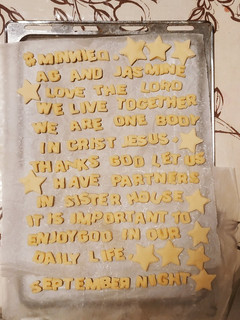 AG AND JASMINE
LOVE THE LORD
WE LIVE TOGETHER
WE ARE ONE BODY
IN CRIST JESUS.
THANKS GOD LET US
HAVE PARTNERS
IN SISTER HOUSE
IT IS IMPORTANT TO
ENJOY GOD IN OUR
DAILY LIFE.
SEPTEMBER NIGHT